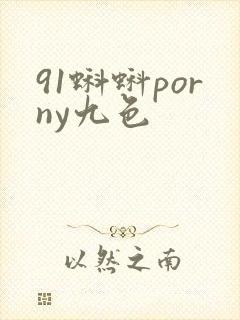 91蝌蝌por
ny九色
以然之南